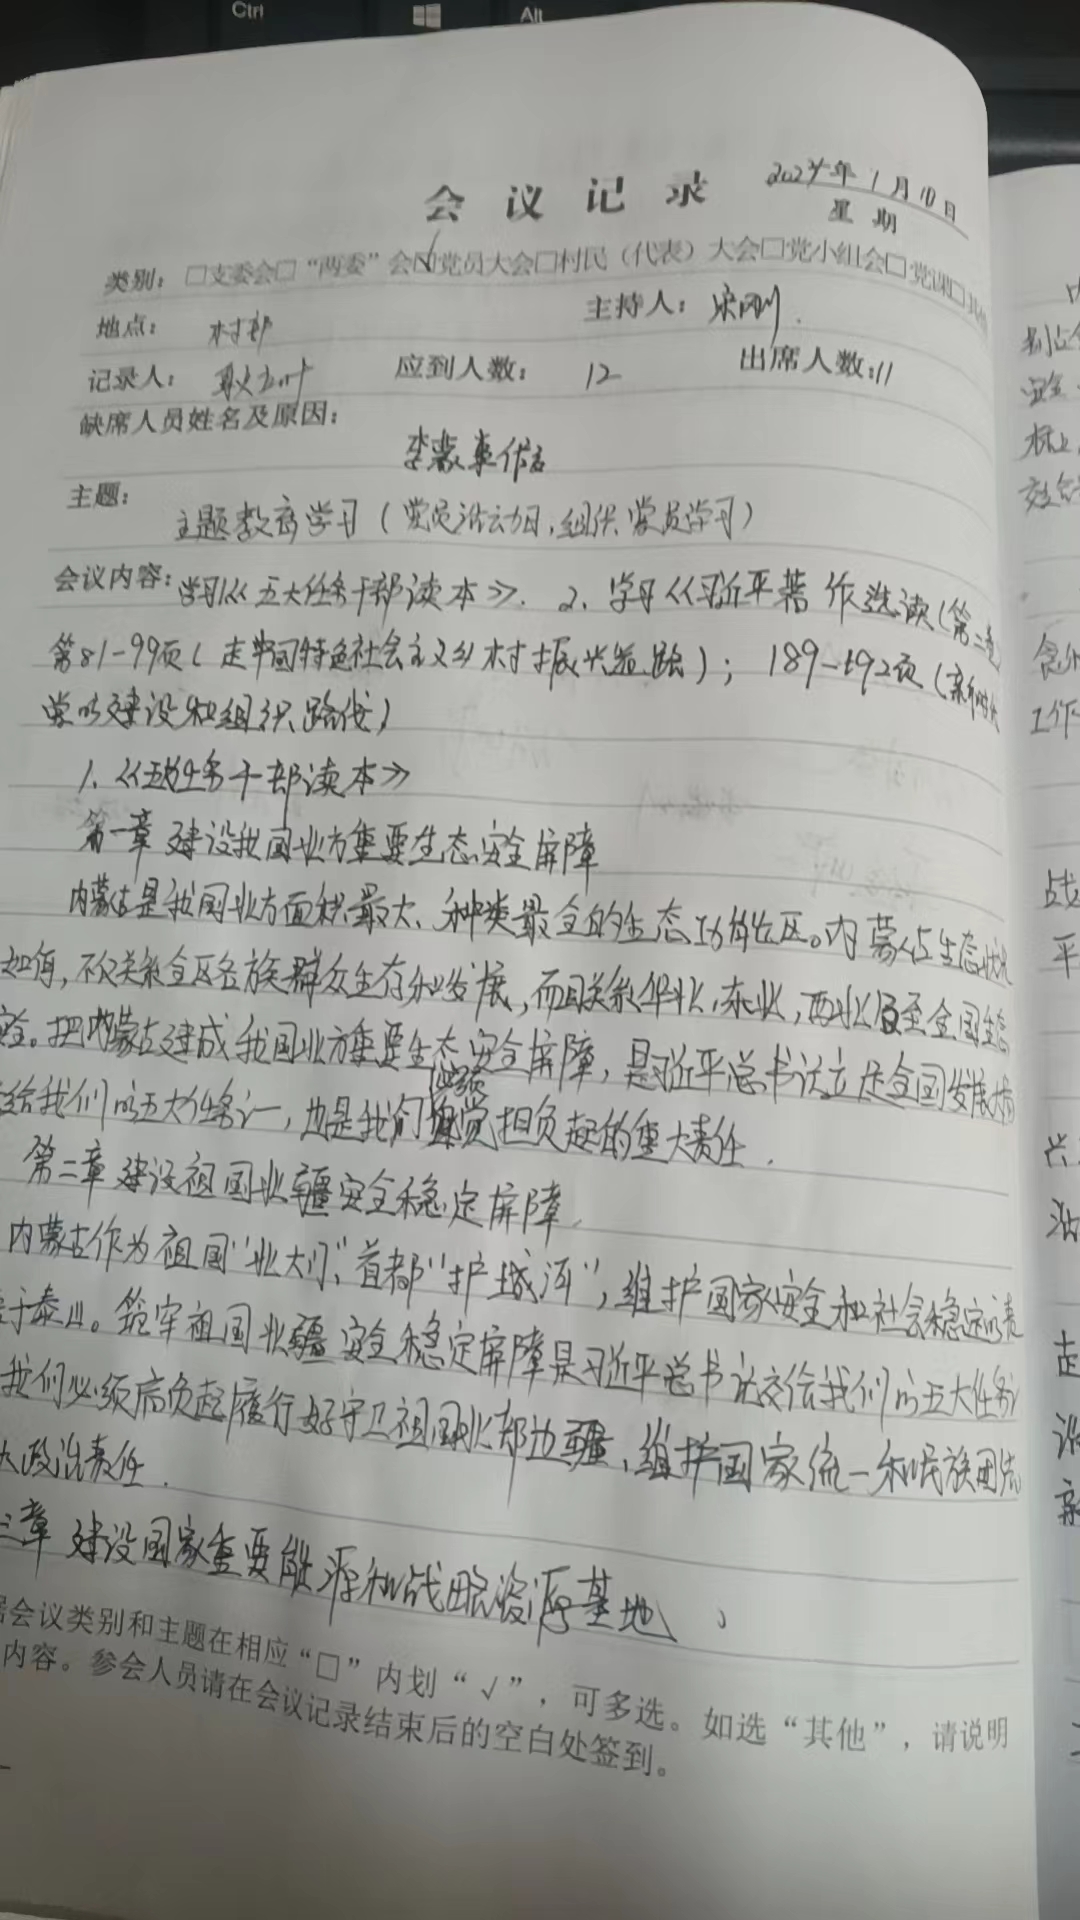 Ctrl
Alt
会议记录
2024年1月10日
星期
类别：□支委会□“两委”会☑党员大会□村民（代表）大会□党小组会□党课□其他
地点：村部
主持人：宋刚
记录人：
应到人数：12
出席人数：11
缺席人员姓名及原因：
李
主题：
主题教育学习（党员活动日，组织党员学习）
会议内容：学习《五大任务干部读本》. 2、学习《习近平著作选读（第二卷）
第81-99页（走中国特色社会主义乡村振兴道路）；189-192页（新时代
党的建设和组织路线）
1.《五大任务干部读本》
第一章 建设我国北方重要生态安全屏障
内蒙古是我国北方面积最大、种类最全的生态功能区。内蒙古生态状况
如何，不仅关系全区各族群众生存和发展，而且关系华北、东北，西北乃至全国生态
安全。把内蒙古建成我国北方重要生态安全屏障，是习近平总书记立足全国发展大局
给我们的五大任务之一，也是我们必须自觉担负起的重大责任.
第二章 建设祖国北疆安全稳定屏障.
内蒙古作为祖国“北大门”、首都“护城河”，维护国家安全和社会稳定的责
于泰山。筑牢祖国北疆安全稳定屏障是习近平总书记交给我们的五大任务
我们必须肩负起履行好守卫祖国北部边疆、维护国家统一和民族团结
大政治责任.
三章 建设国家重要能源和战略资源基地
会议类别和主题在相应“□”内划“√”，可多选。如选“其他”，请说明
内容。参会人员请在会议记录结束后的空白处签到。